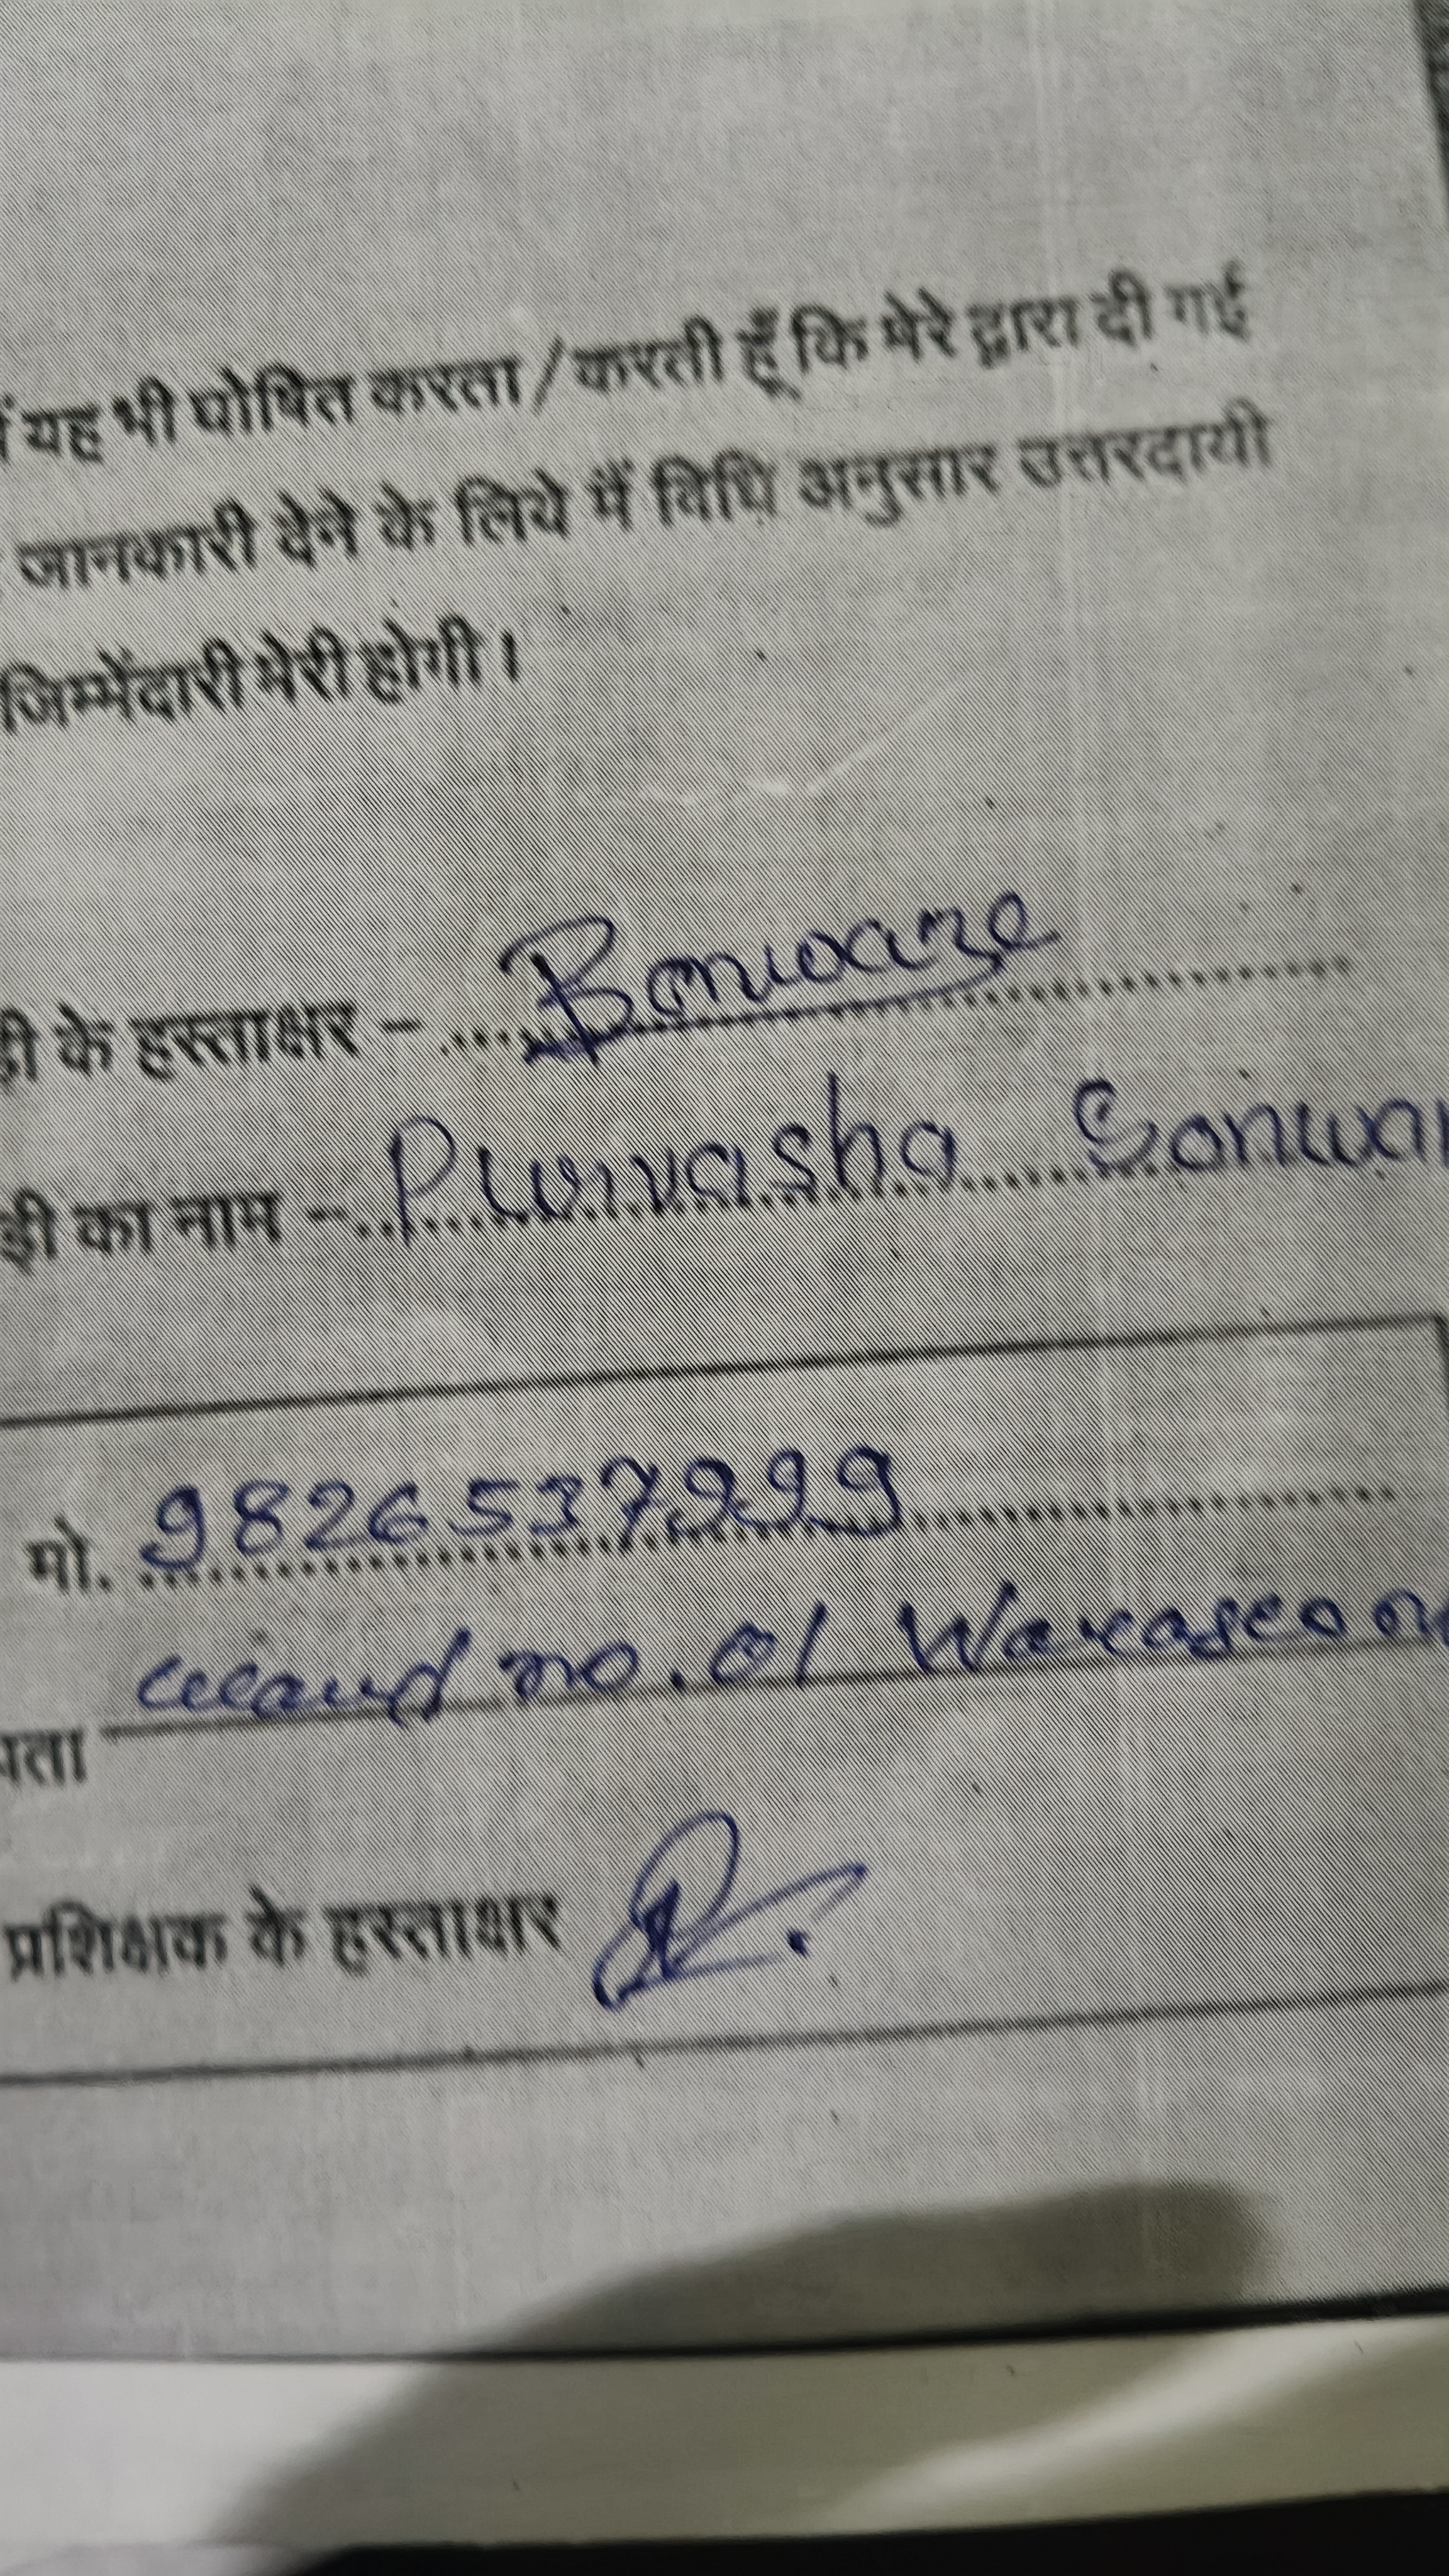 यह भी घोषित करता / करती हूँ कि मेरे द्वारा दी गई
जानकारी देने के लिये मैं विधि अनुसार उत्तरदायी
जिम्मेंदारी मेरी होगी।
ड़ी के हस्ताक्षर –
ड़ी का नाम – Purvasha Sonwa
मो. 9826537999
पता ward no. 01 Waraseon
प्रशिक्षक के हस्ताक्षर